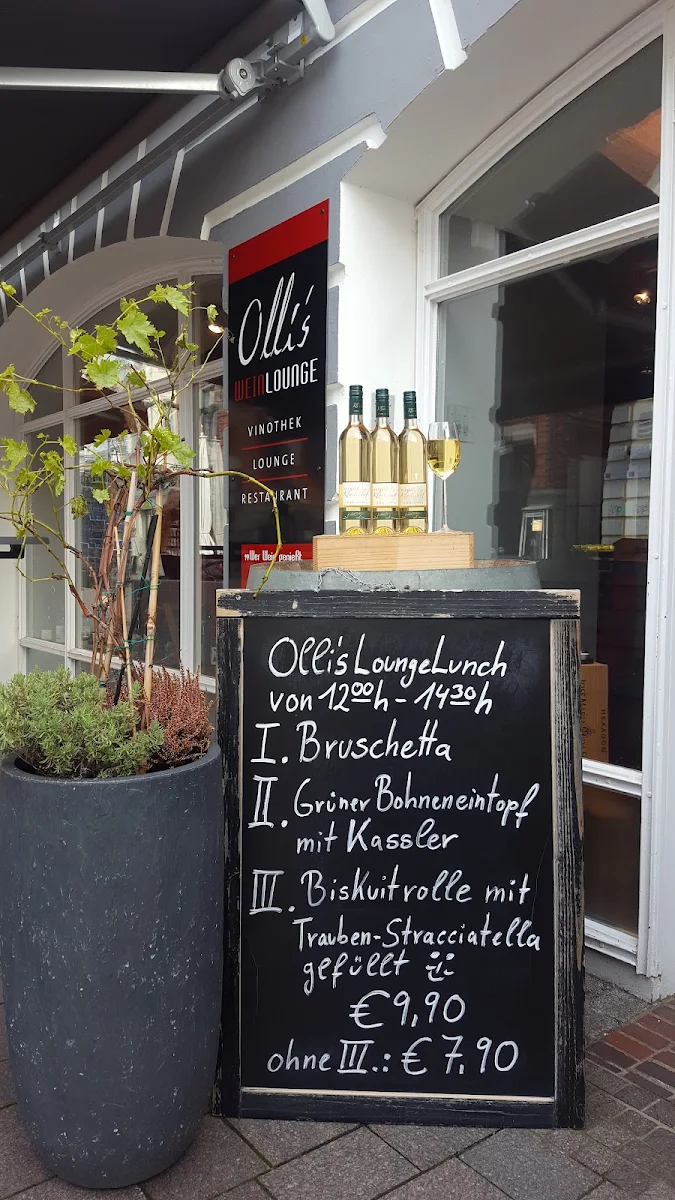 Olli's
WEINLOUNGE
VINOTHEK
LOUNGE
RESTAURANT
»Wer Wein genießt
Olli's LoungeLunch
von 12⁰⁰h - 14³⁰h
I. Bruschetta
II. Grüner Bohneneintopf
mit Kassler
III. Biskuitrolle mit
Trauben-Stracciatella
gefüllt
€ 9,90
ohne III.: € 7.90